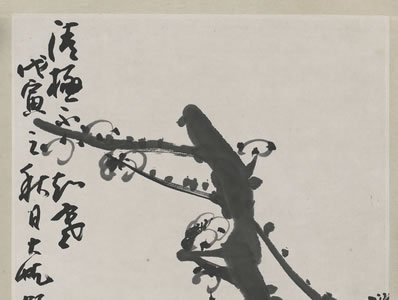 清極不知寒
戊寅之秋日大